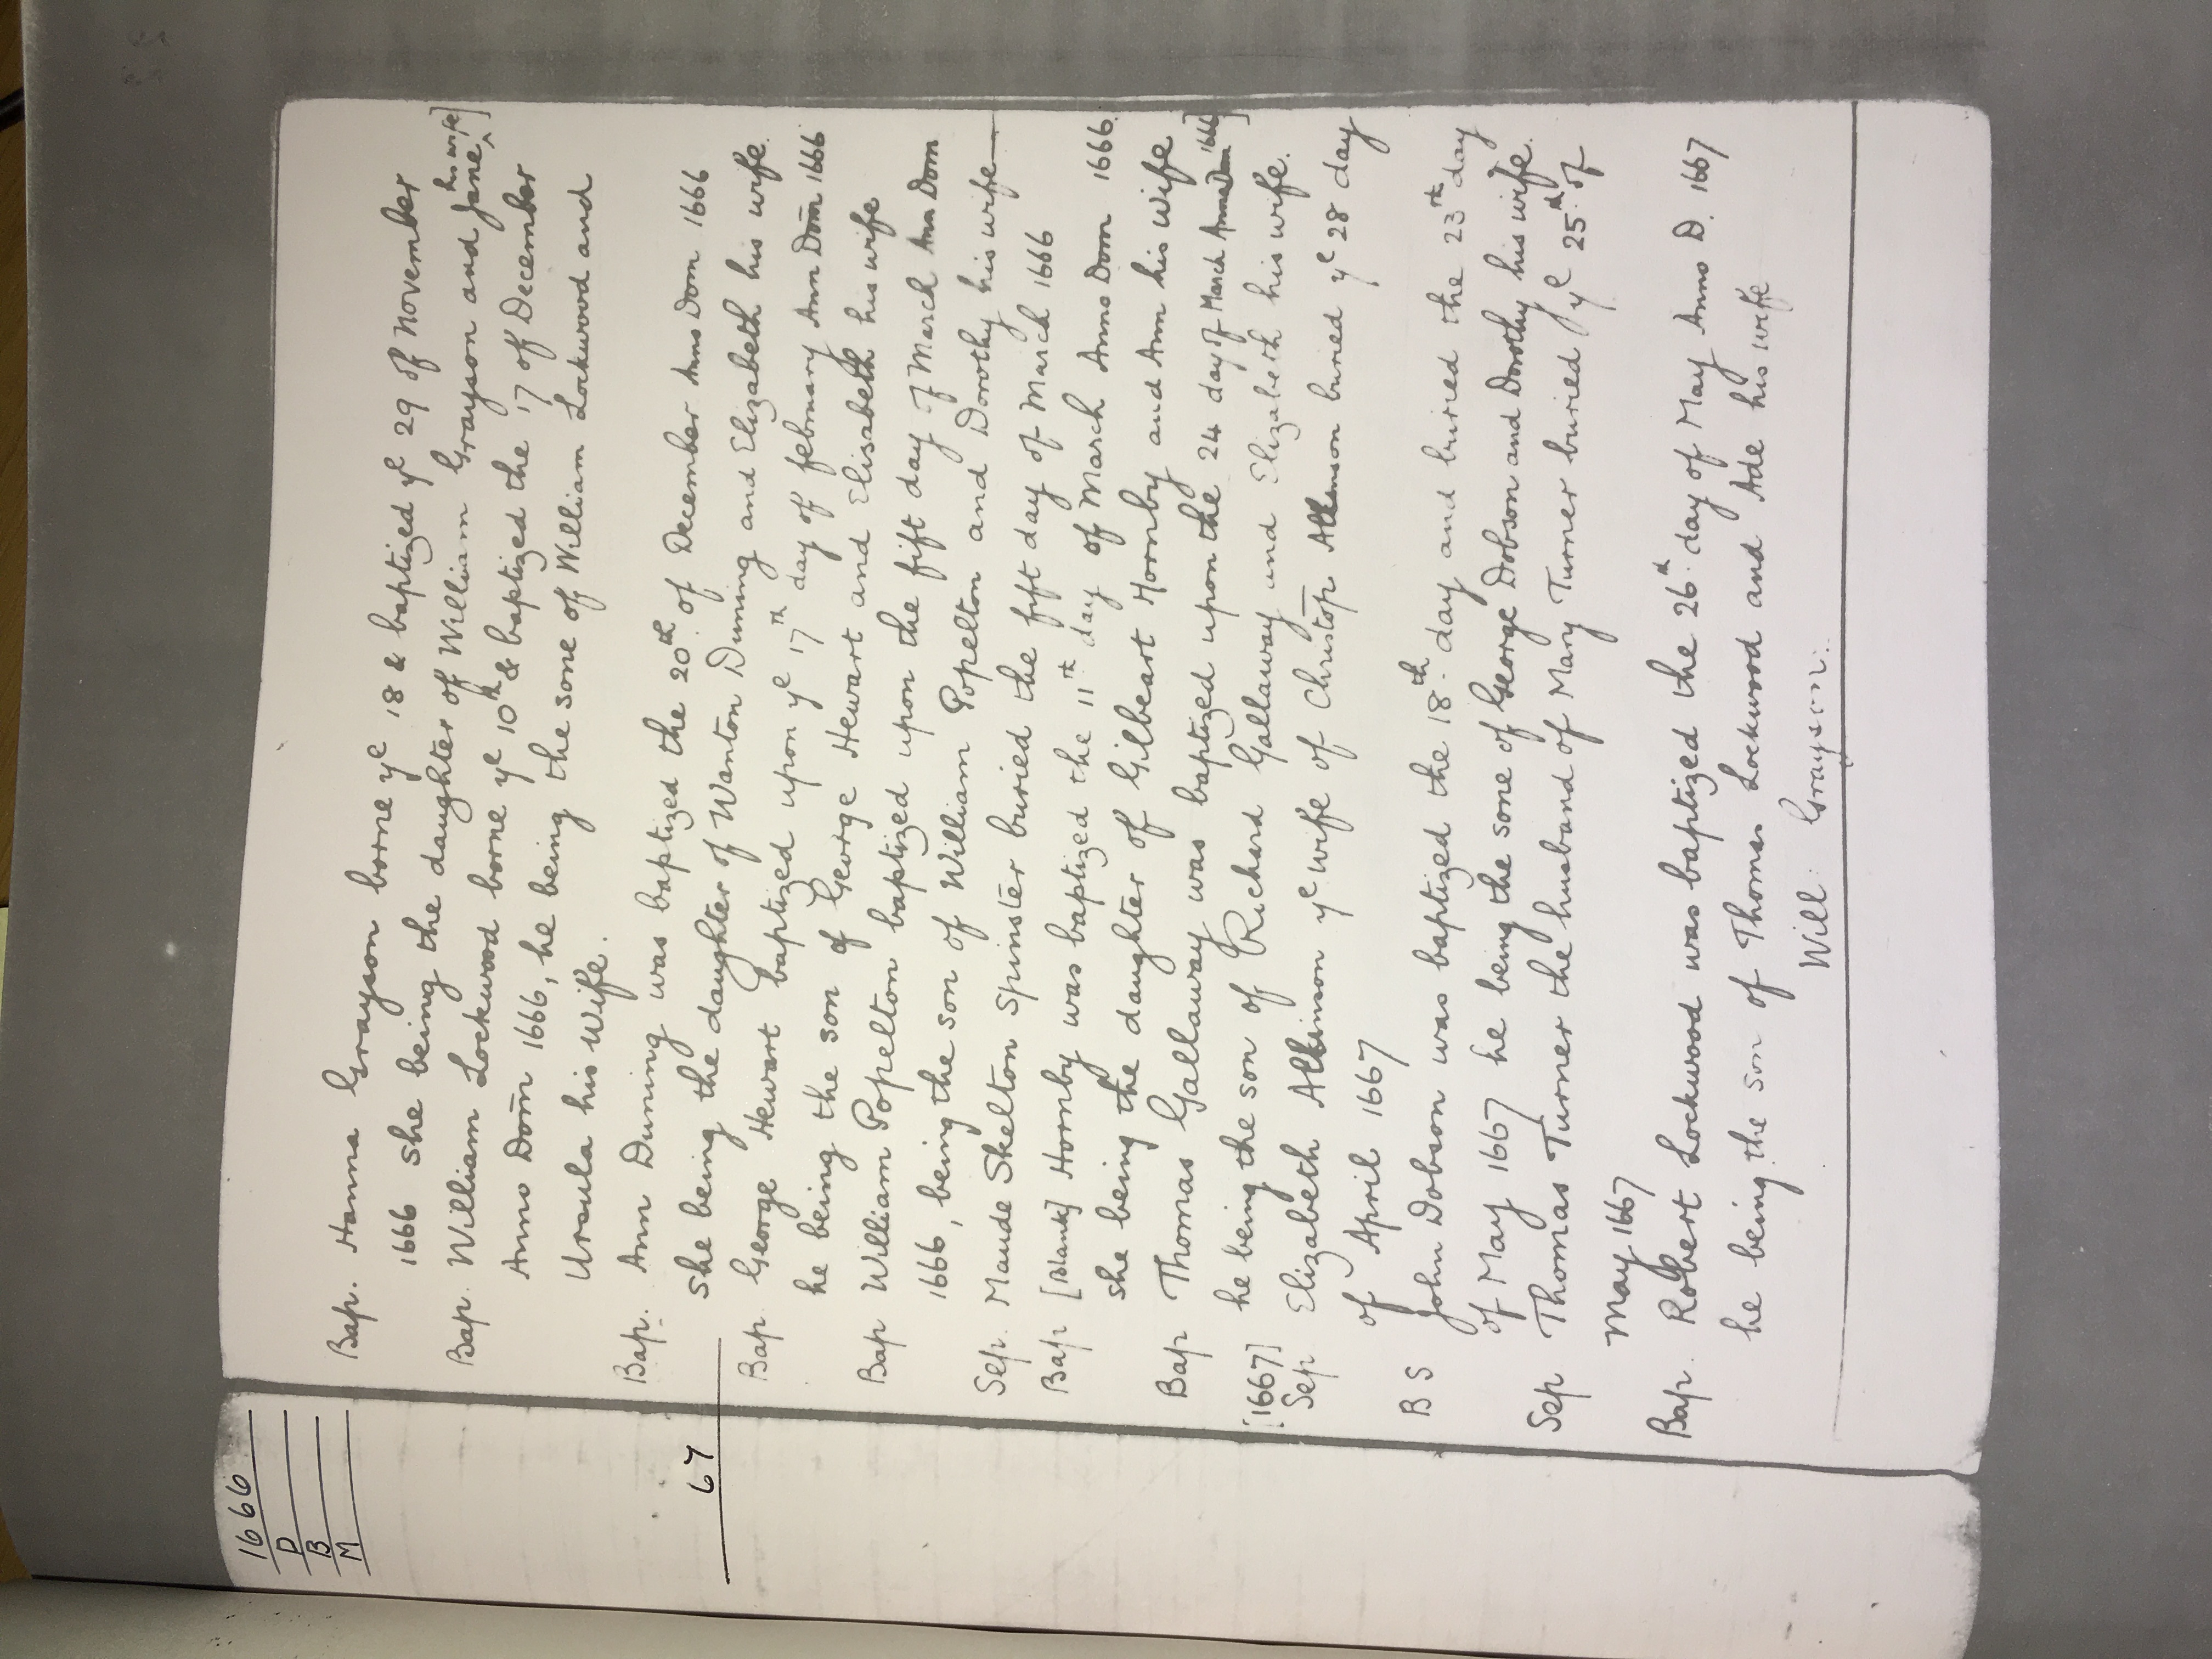 1666
D
B
M
Bap. Hanna Grayson borne yᵉ 18 & baptized yᵉ 29 of November
1666 she being the daughter of William Grayson and Jane ^his wife]
Bap. William Lockwood borne yᵉ 10ᵗʰ & baptized the 17 of December
Anno Dom̄ 1666, he being the sone of William Lockwood and
Ursula his Wife.
Bap. Ann Dunning was baptized the 20ᵗʰ. of December Anno Dom 1666
she being the daughter of Wanton Dunning and Elizabeth his wife.
67
Bap George Hewart baptized upon yᵉ 17ᵗʰ day of february Ann Dom̄ 1666
he being the son of George Hewart and Elisabeth his wife
Bap William Popelton baptized upon the fift day of March Ann Dom
1666, being the son of William Popelton and Dorothy his wife—
Sep. Maude Skelton spinster buried the fift day of March 1666
Bap [Blank] Hornby was baptized the 11ᵗʰ day of March Anno Dom 1666.
she being the daughter of Gilbeart Hornby and Ann his Wife
Bap Thomas Gallaway was baptized upon the 24 day of March Anno Dom 1666]
he being the son of Richard Gallaway and Elizabeth his wife.
[1667]
Sep Elizabeth Atkinson yᵉ wife of Christop̄ Atkinson buried yᵉ 28 day
of April 1667
B S John Dobson was baptized the 18ᵗʰ. day and buried the 23ᵗʰ day
of May 1667 he being the sone of George Dobson and Dorothy his wife.
Sep Thomas Turner the husband of Mary Turner buried yᵉ 25ᵗʰ. of
May 1667
Bap. Robert Lockwood was baptized the 26ᵗʰ. day of May Anno D. 1667
he being the son of Thomas Lockwood and Ade his wife
Will: Grayson: